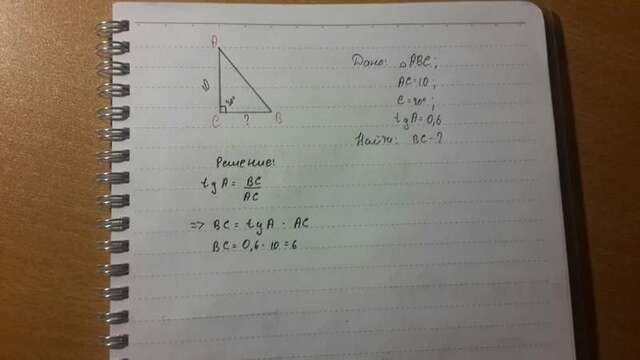 A
10
90°
C
?
B
Дано: △ABC;
AC=10;
C=90°;
tgA=0,6
Найти: BC-?
Решение:
tgA = BC
AC
=> BC = tgA · AC
BC = 0,6 · 10 = 6